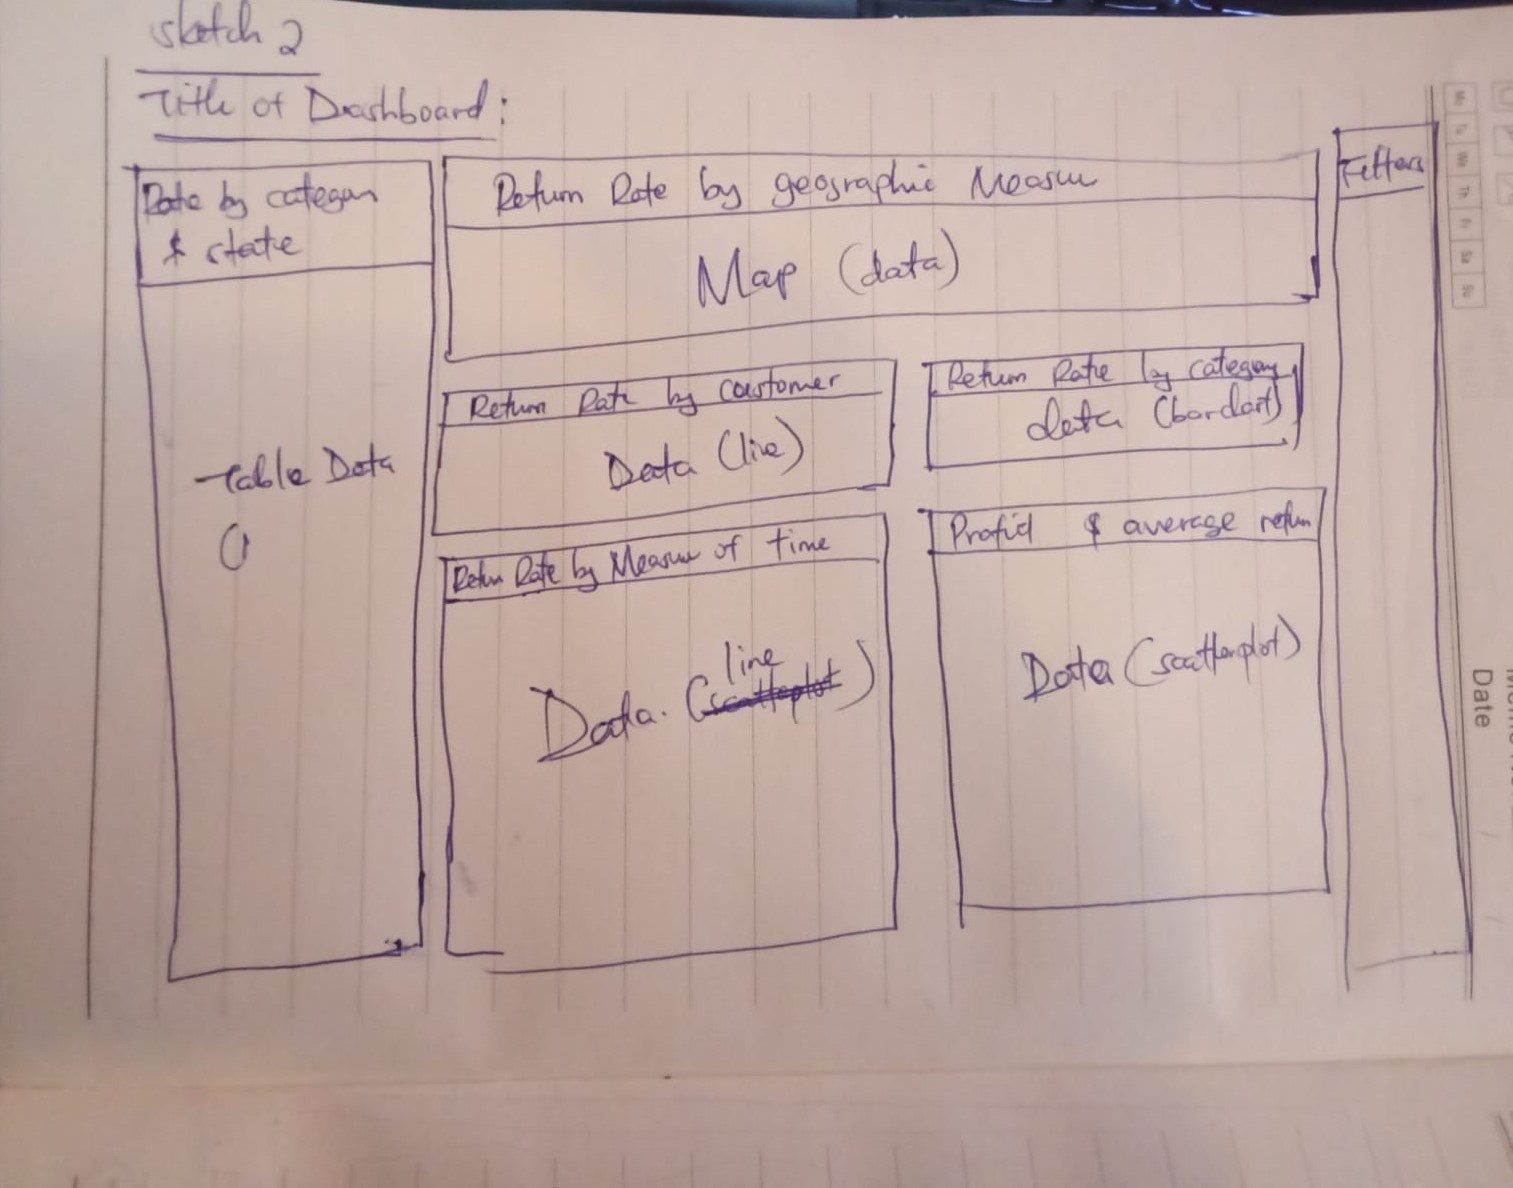 sketch 2
Title of Dashboard:
Rate by category
& state
Table Data
()
Return Rate by geographic Measure
Map (data)
Return Rate by customer
Data (line)
Return Rate by category
data (barchart)
Return Rate by Measure of time
line
Data. (scatterplot)
Profid & average return
Data (scatterplot)
Filters
Mo
Tu
We
Th
Fr
Sa
Su
Date